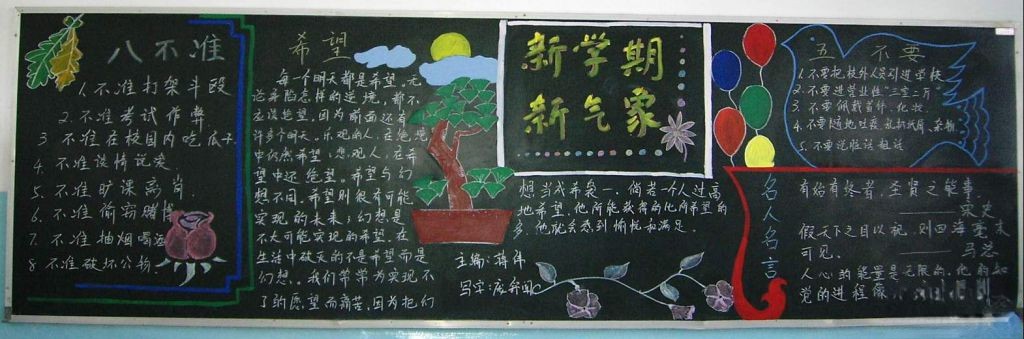 八不准
1.不准打架斗殴
2.不准考试作弊
3 不准在校园内吃瓜子
4.不准谈情说爱
5.不准旷课
6.不准偷窃赌博
7.不准抽烟喝酒
8 不准破坏公物
希望
每一个明天都是希望。无
论身陷怎样的逆境，都不
应该绝望，因为前面还有
许多个明天。乐观的人，在绝境
中仍然希望；悲观人，在希
望中还绝望。希望与幻
想不同。希望则很有可能
实现的未来；幻想是
不大可能实现的希望。在
生活中破灭的不是希望而是
幻想。我们常常为实现不
了的愿望而痛苦，因为把们
新学期
新气象
想当成希望一，倘若一个人过高
地希望，他所能获得的他所希望的
多，他就会感到愉悦和满足。
主编：
写字：
五不要
1.不要把校外人员引进学校
2.不要进营业性“三室二厅”
3.不要佩戴首饰、化妆
4.不要随地吐痰、乱扔纸屑、杂物
5.不要说脏话粗话
名人名言
有始有终者，圣贤之能事
假天下之目以视，则四海毫末
可见。
人心的能量是无限的，他的知
觉的进程